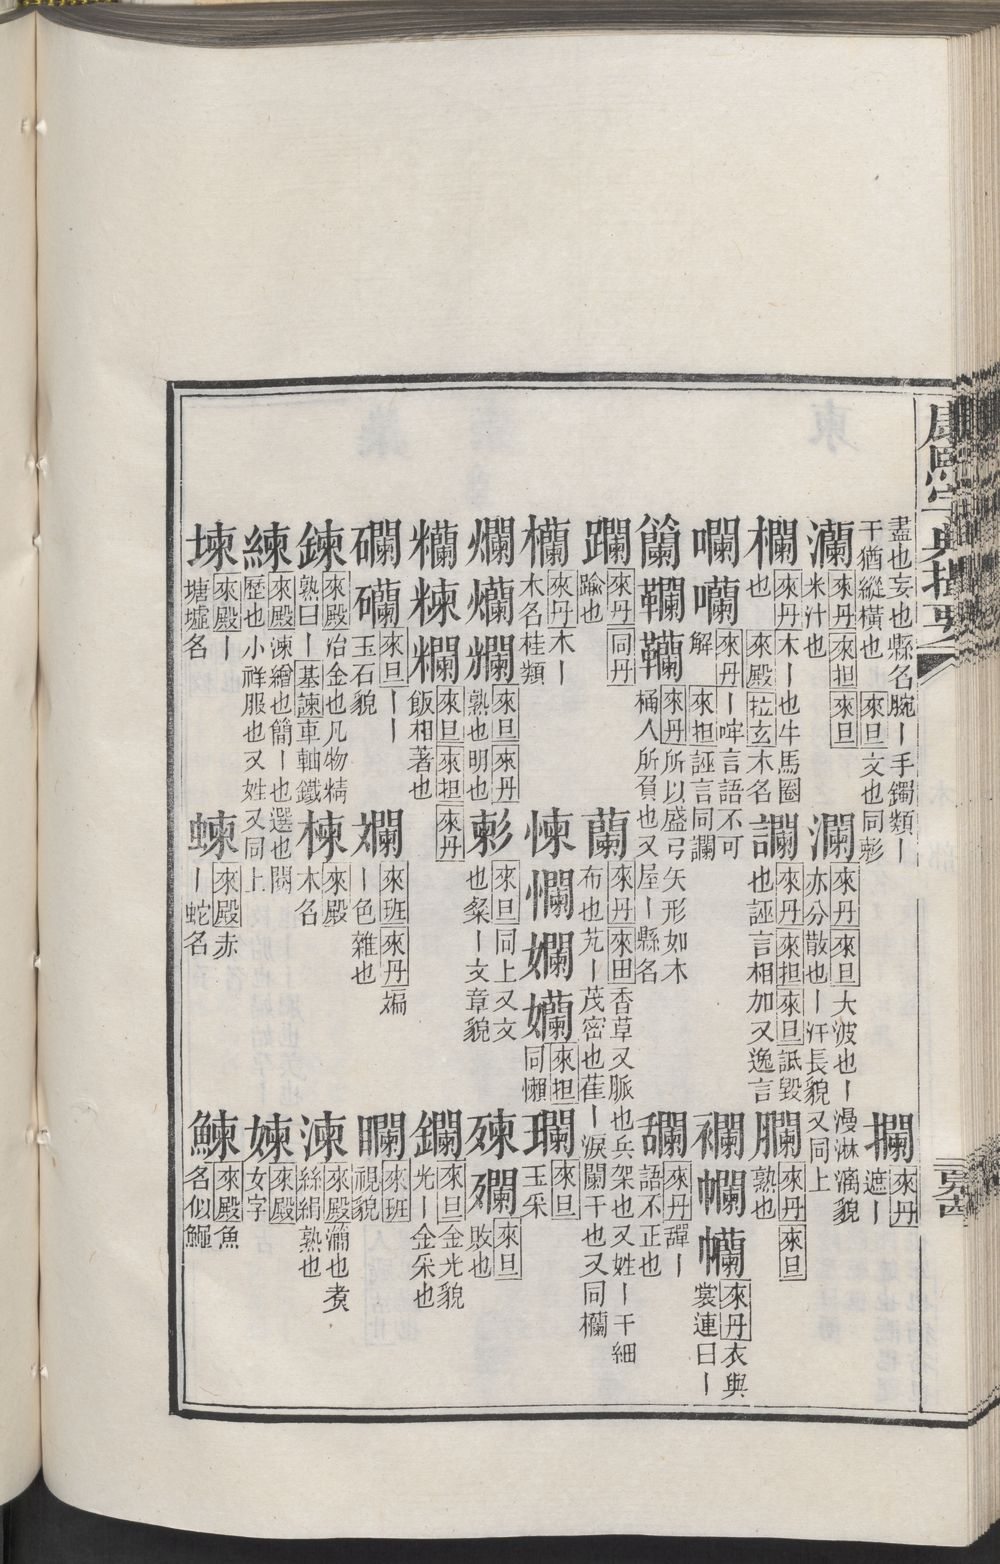 康熙字典撮要
盡也妄也縣名腕〡手鐲類〡干猶縱橫也來旦文也同㓓 攔來丹遮〡
灡來丹來担來旦米汁也 瀾來丹來旦大波也〡漫淋漓貌亦分散也〡汗長貌又同上
欄來丹木〡也牛馬圈也來殿拉玄木名 讕來丹來担來旦詆毀也誣言相加又逸言 臈來丹來旦熟也
㘓囒來丹〡哰言語不可解來担誣言同讕 襴幱㡩來丹衣與裳連曰〡
籣韊䪍來丹所以盛弓矢形如木桶人所負也又屋〡縣名 來丹譂〡語不正也
躝來丹同丹踰也 蘭來丹來田香草又脈也兵架也又姓〡干細布也艽〡茂密也萑〡淚闌干也又同欗
欗來丹木〡木名桂類 㦨嬾孄孏來担同懶 瓓來旦玉采
爛爤燗來旦來丹熟也明也 㓓來旦同上又文也粲〡文章貌 殰來旦敗也
糷䊛𥽸來旦來担來丹飯相著也 鑭來旦金光貌光〡金采也
礀礷來旦〡〡玉石貌 斕來班來丹斒〡色雜也 矙來班視貌
鍊來殿冶金也凡物精熟曰〡基諫車軸鐵 楝來殿木名 湅來殿瀹也煑絲絹熟也
練來殿湅繒也簡〡也選也閱歷也小祥服也又姓又同上 媡來殿女字
堜來殿〡塘墟名 蝀來殿赤〡蛇名 鰊來殿魚名似鱦